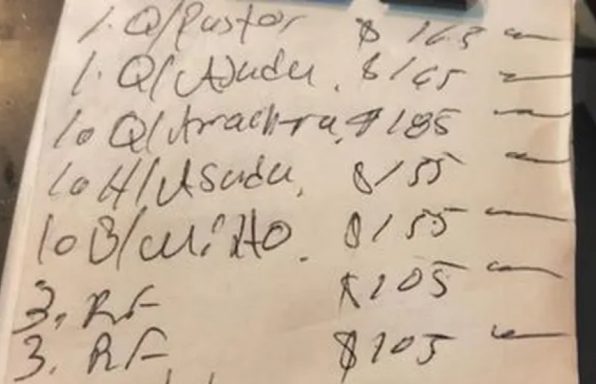 1. Q/Pastor $ 165
1. Q/Asada. $165
10 Q/Arrachera, $185
10 H/Asada, $155
10 B/ $155
3. RF $105
3. RF $105